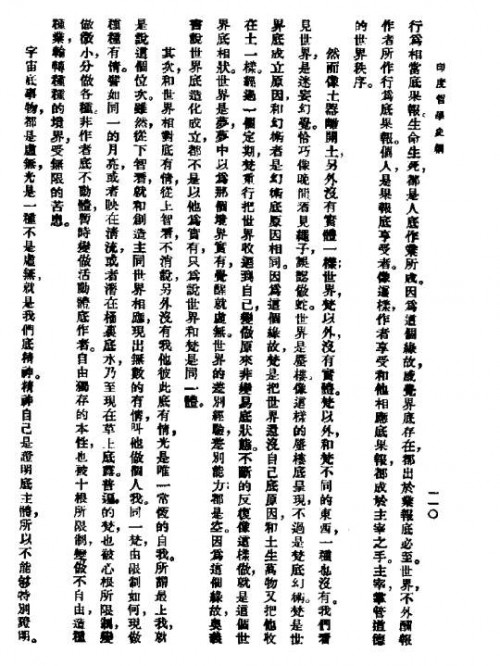 印度哲學史綱
一一〇
行爲相當底果報。生命生死都是人底作業所成。因爲這個緣故,感覺界底存在,都出於業報底必至。世界不外酬報
作者所作行爲底果報。個人是果報底享受者。像這樣作者享受和他相應底果報,都成於主宰之手。主宰,掌管道德
的世界秩序。
然而像土器離開土另外沒有實體一樣,世界梵以外,沒有實體。梵以外,和梵不同的東西,一種也沒有。我們看
見世界,是迷妄幻覺。恰巧像晚間看見繩子,誤認做蛇。世界是蜃樓,像這樣的蜃樓底呈現,不過是梵底幻術。梵是世
界底成立原因,和幻術者是幻術底原因相同。因爲這個緣故,梵是把世界還沒自己底原因,和土生萬物,又把他收
在土一樣。經過一個定期,梵重行把世界收迴到自己,變做原來非變易底狀態。不斷的反復像這樣做,就是這個世
界底相狀。世界是夢,夢中以爲那個境界實有,覺醒就虛無。世界的差別經驗,差別能力都是空。因爲這個緣故,奧義
書說世界底造化成立,都不是以他爲實有,只爲說世界和梵是同一體。
其次和世界相對底有情,從上智看,不消說另外沒有我他彼此底有情,光是唯一常恆的自我。所謂最上我,就
是說這個位次。雖然從下智看,就和創造主同世界相應,現出無數的有情,叫他做個人我。同一梵由限制如何,現做
種種有情。譬如同一的月亮,或者映在清流,或者瀦在桶裏底水,乃至現在草上底露。普遍的梵也被心根所限制,變
做微小分,做各種非作者底不動體,暫時變做活動體底作者。自由獨存的本性,也被十根所限制,變做不自由,造種
種業,輪轉種種的境界,受無限的苦患。
宇宙底事物都是虛無,光是一種不是虛無,就是我們底精神。精神自己是證明底主體,所以不能夠特別證明。